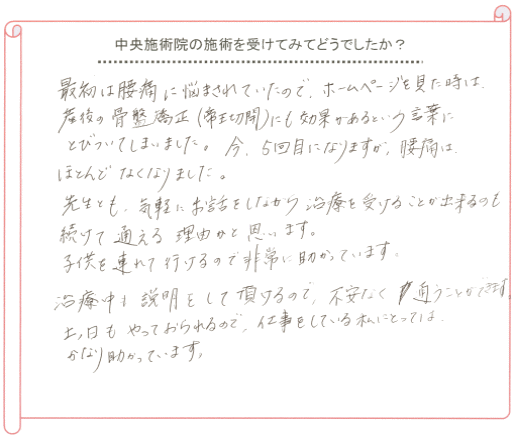 中央施術院の施術を受けてみてどうでしたか？
最初は腰痛に悩まされていたので、ホームページを見た時は、
産後の骨盤矯正(帝王切開)にも効果があるという言葉に
とびついてしまいました。今、5回目になりますが、腰痛は、
ほとんどなくなりました。
先生とも、気軽にお話をしながら治療を受けることが出来るのも
続けて通える理由かと思います。
子供を連れて行けるので非常に助かっています。
治療中も説明をして頂けるので、不安なく通うことができます。
土、日もやっておられるので、仕事をしている私にとっては、
かなり助かっています。